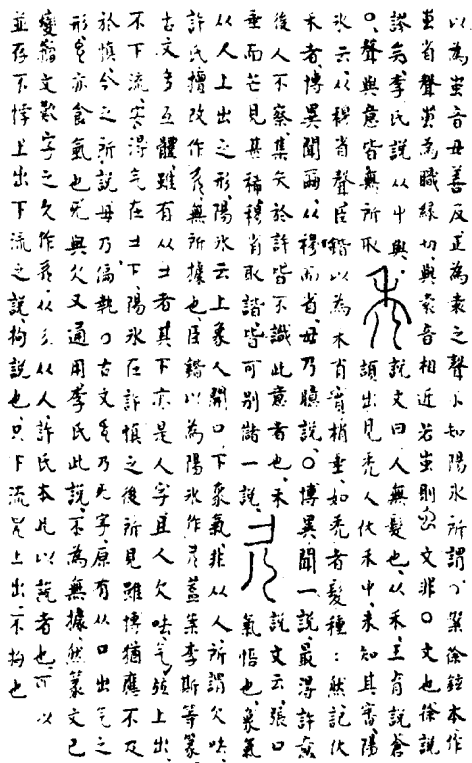 以為䖵音毋善反正為袁之聲卜知陽氷所謂〇案徐鉉本作
䖵省聲䖵為職緣切與袁音相近若虫則文非〇文也徐說
謬矣李氏說从屮與
〇聲與意皆無所取
禿
說文曰人無髮也从禾王育說蒼
頡出見禿人伏禾中未知其審陽
氷云从穆省聲臣鍇以為木有實梢垂如禿者髮種種然記伏
禾者博異聞爾从穆而省毋乃臆說〇博異聞一說最得許意
後人不察集矢於許皆不識此意者也禾
垂而芒見其稀穆省取諧皆可別諸一說
欠
說文云張口
氣悟也象氣
从人上出之形陽氷云上象人開口下象氣非从人所謂欠呿
許氏擅改作無所據也臣鍇以為陽氷作蓋案李斯等篆
古文多互體雖有从彡者其下亦是人字且人欠呿气於上出
不下流安得气在彡下陽氷在許慎之後所見雖博猶應不及
於慎今之所說毋乃偏執〇古文乃旡字原有从口出气之
形亦食氣也旡與欠又通用李氏此說不為無據然篆文已
變籀文數字之欠作从彡从人許氏本此以說者也可以
並存不悖上出下流之說拘說也只下流上出不拘也